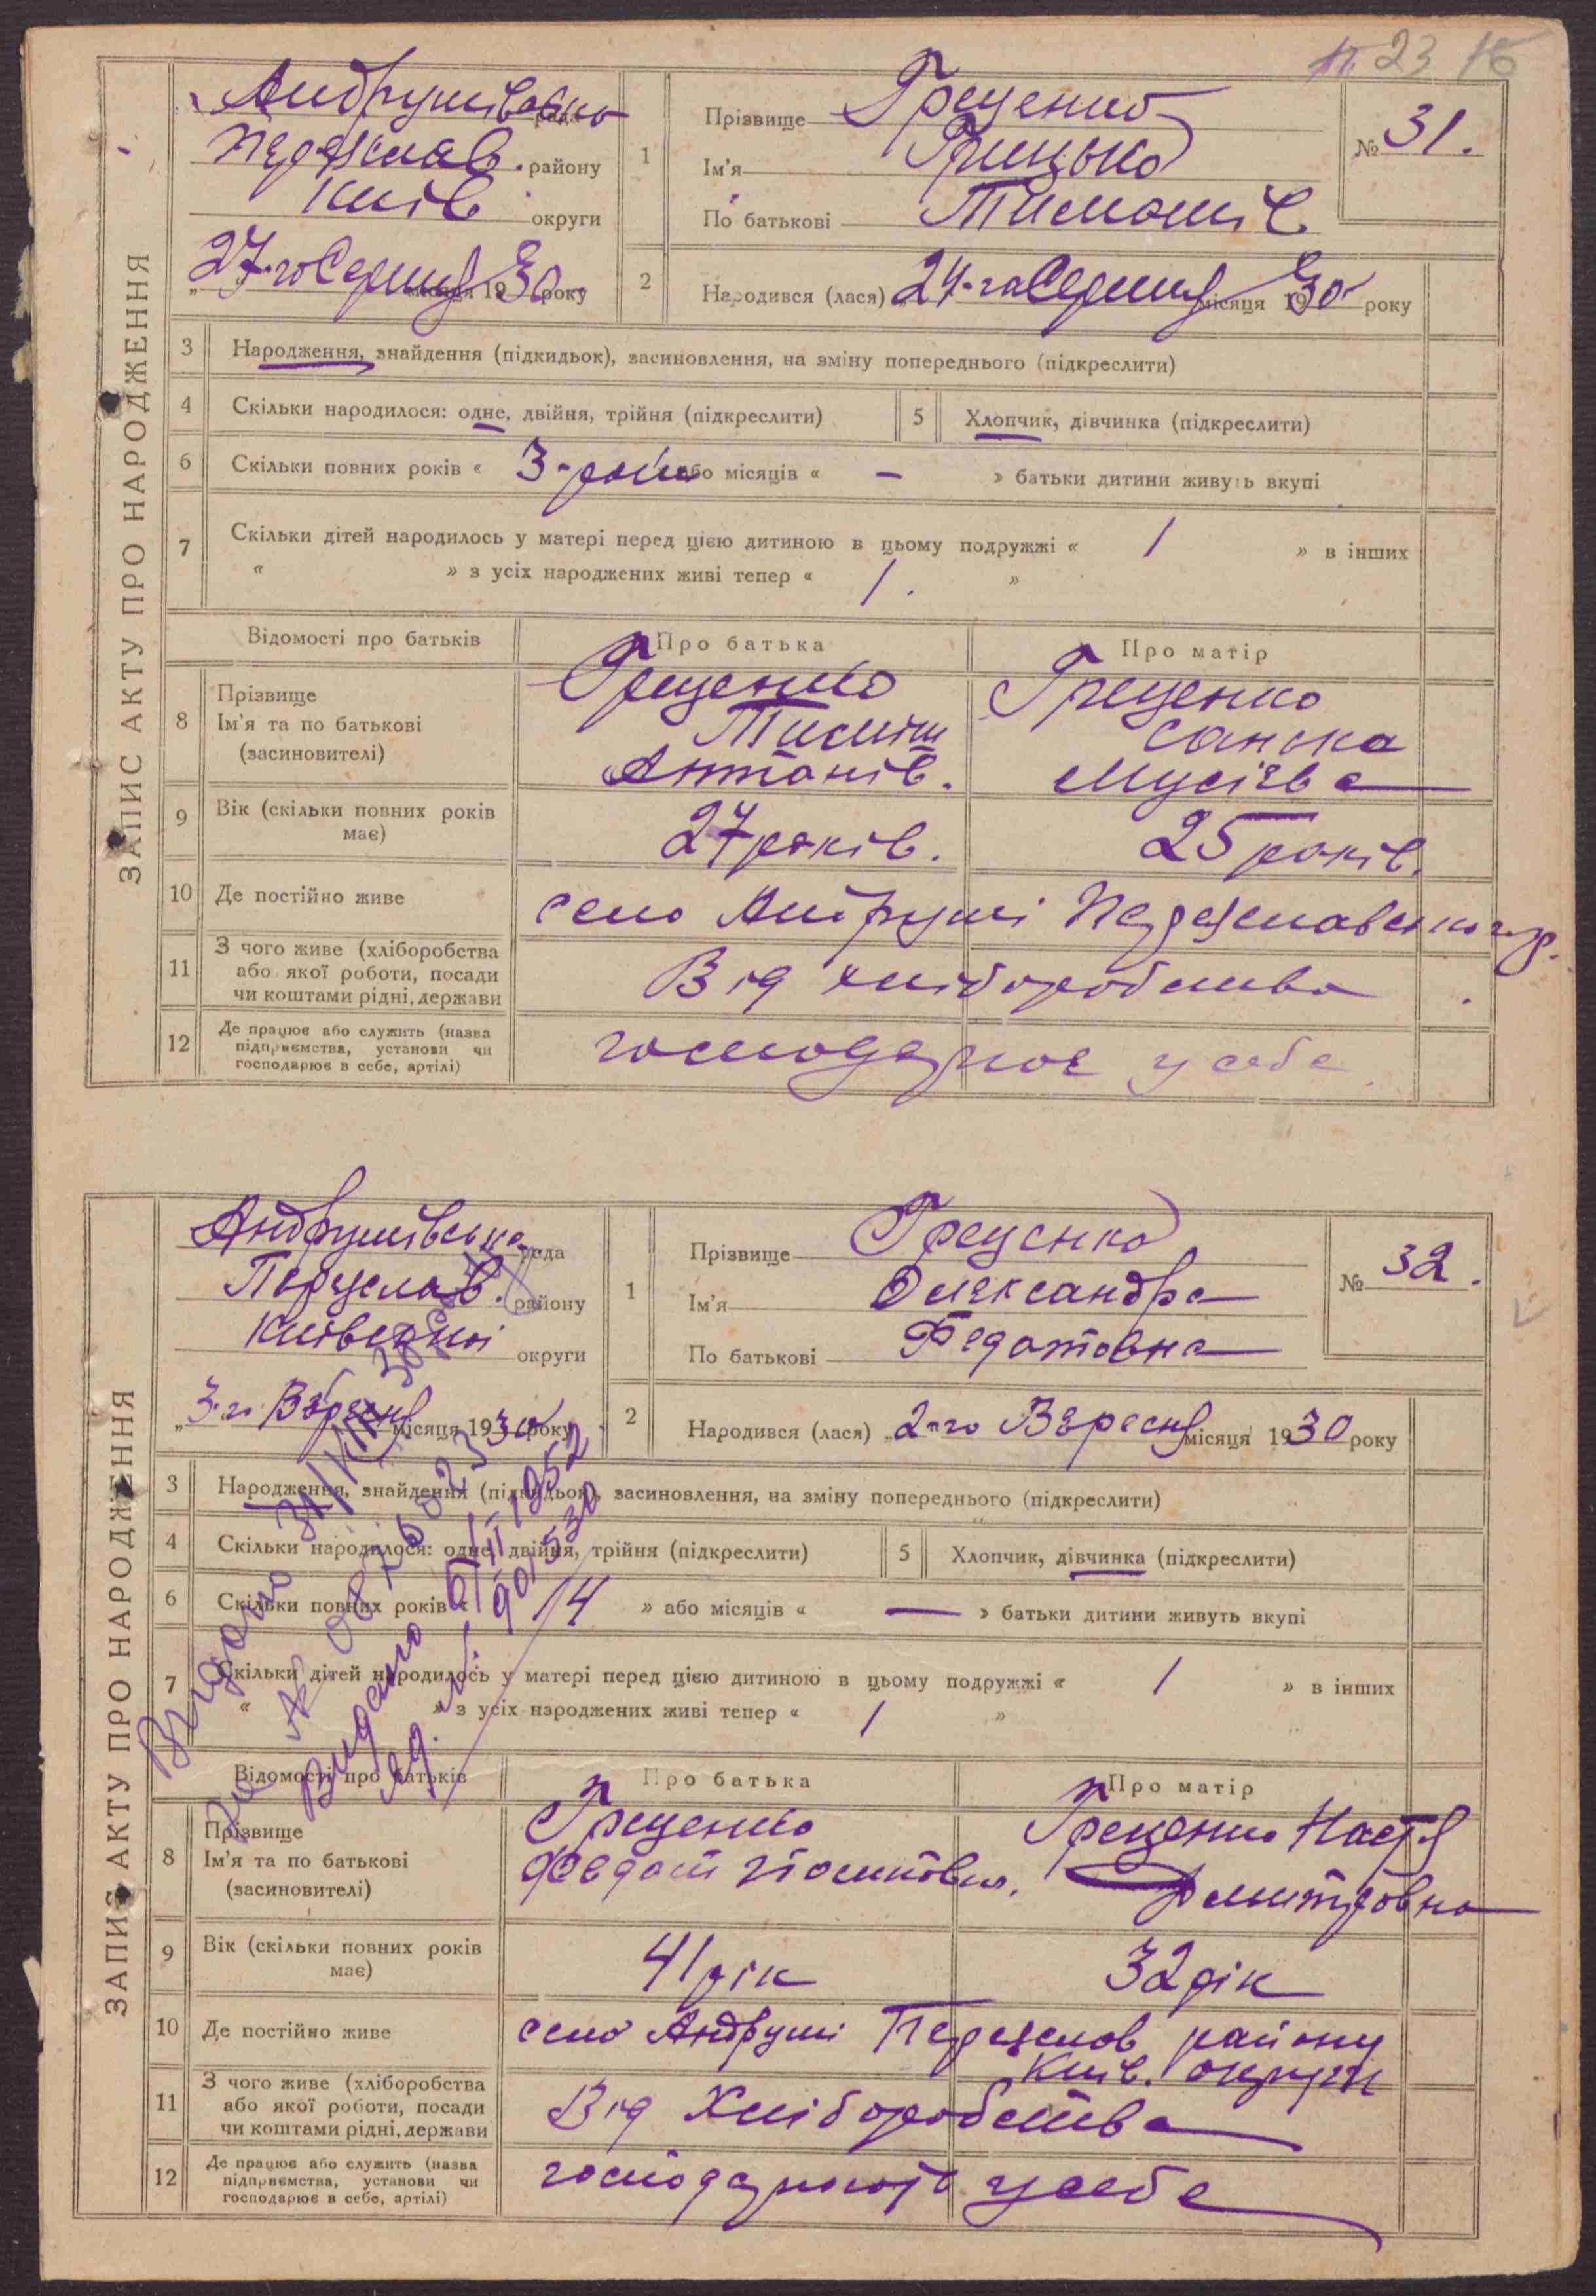 23 16
ЗАПИС АКТУ ПРО НАРОДЖЕННЯ
Андрушівська рада
Переяслав. району
Київ округи
„27-го Серпня місяця 1930 року
1 Прізвище Греценко
Ім'я Грицько
По батькові Тимошів
№ 31.
2 Народився (лася) „24-го Серпня місяця 1930 року
3 Народження, знайдення (підкидьок), засиновлення, на зміну попереднього (підкреслити)
4 Скільки народилося: одне, двійня, трійня (підкреслити) 5 Хлопчик, дівчинка (підкреслити)
6 Скільки повних років « 3-роки або місяців « — » батьки дитини живуть вкупі
7 Скільки дітей народилось у матері перед цією дитиною в цьому подружжі « 1 » в інших
« » з усіх народжених живі тепер « 1. »
Відомості про батьків Про батька Про матір
8 Прізвище Ім'я та по батькові (засиновителі)
Греценко Тиміш Антонів.
Греценко Санька Мусієва
9 Вік (скільки повних років має) 27 років. 25 років.
10 Де постійно живе село Андруші Переяславського р.
11 З чого живе (хліборобства або якої роботи, посади чи коштами рідні, держави Від хліборобства
12 Де працює або служить (назва підприємства, установи чи господарює в себе, артілі) господарює у себе
ЗАПИС АКТУ ПРО НАРОДЖЕННЯ
Андрушівська рада
Переяслав. району
Київської округи
„3-го Вересня місяця 1930 року
1 Прізвище Греценко
Ім'я Олександра
По батькові Федотовна
№ 32.
2 Народився (лася) „2-го Вересня місяця 1930 року
3 Народження, знайдення (підкидьок), засиновлення, на зміну попереднього (підкреслити)
4 Скільки народилося: одне, двійня, трійня (підкреслити) 5 Хлопчик, дівчинка (підкреслити)
6 Скільки повних років « 14 » або місяців « — » батьки дитини живуть вкупі
7 Скільки дітей народилось у матері перед цією дитиною в цьому подружжі « 1 » в інших
« » з усіх народжених живі тепер « 1 »
Видано
Видано 6/II-1952
Відомості про батьків Про батька Про матір
8 Прізвище Ім'я та по батькові (засиновителі)
Греценко Федот
Греценко Настя Дмитровна
9 Вік (скільки повних років має) 41 рік 32 рік
10 Де постійно живе село Андруші Переяслов району
Київ. округи
11 З чого живе (хліборобства або якої роботи, посади чи коштами рідні, держави Від Хліборобства
12 Де працює або служить (назва підприємства, установи чи господарює в себе, артілі) господарюють у себе